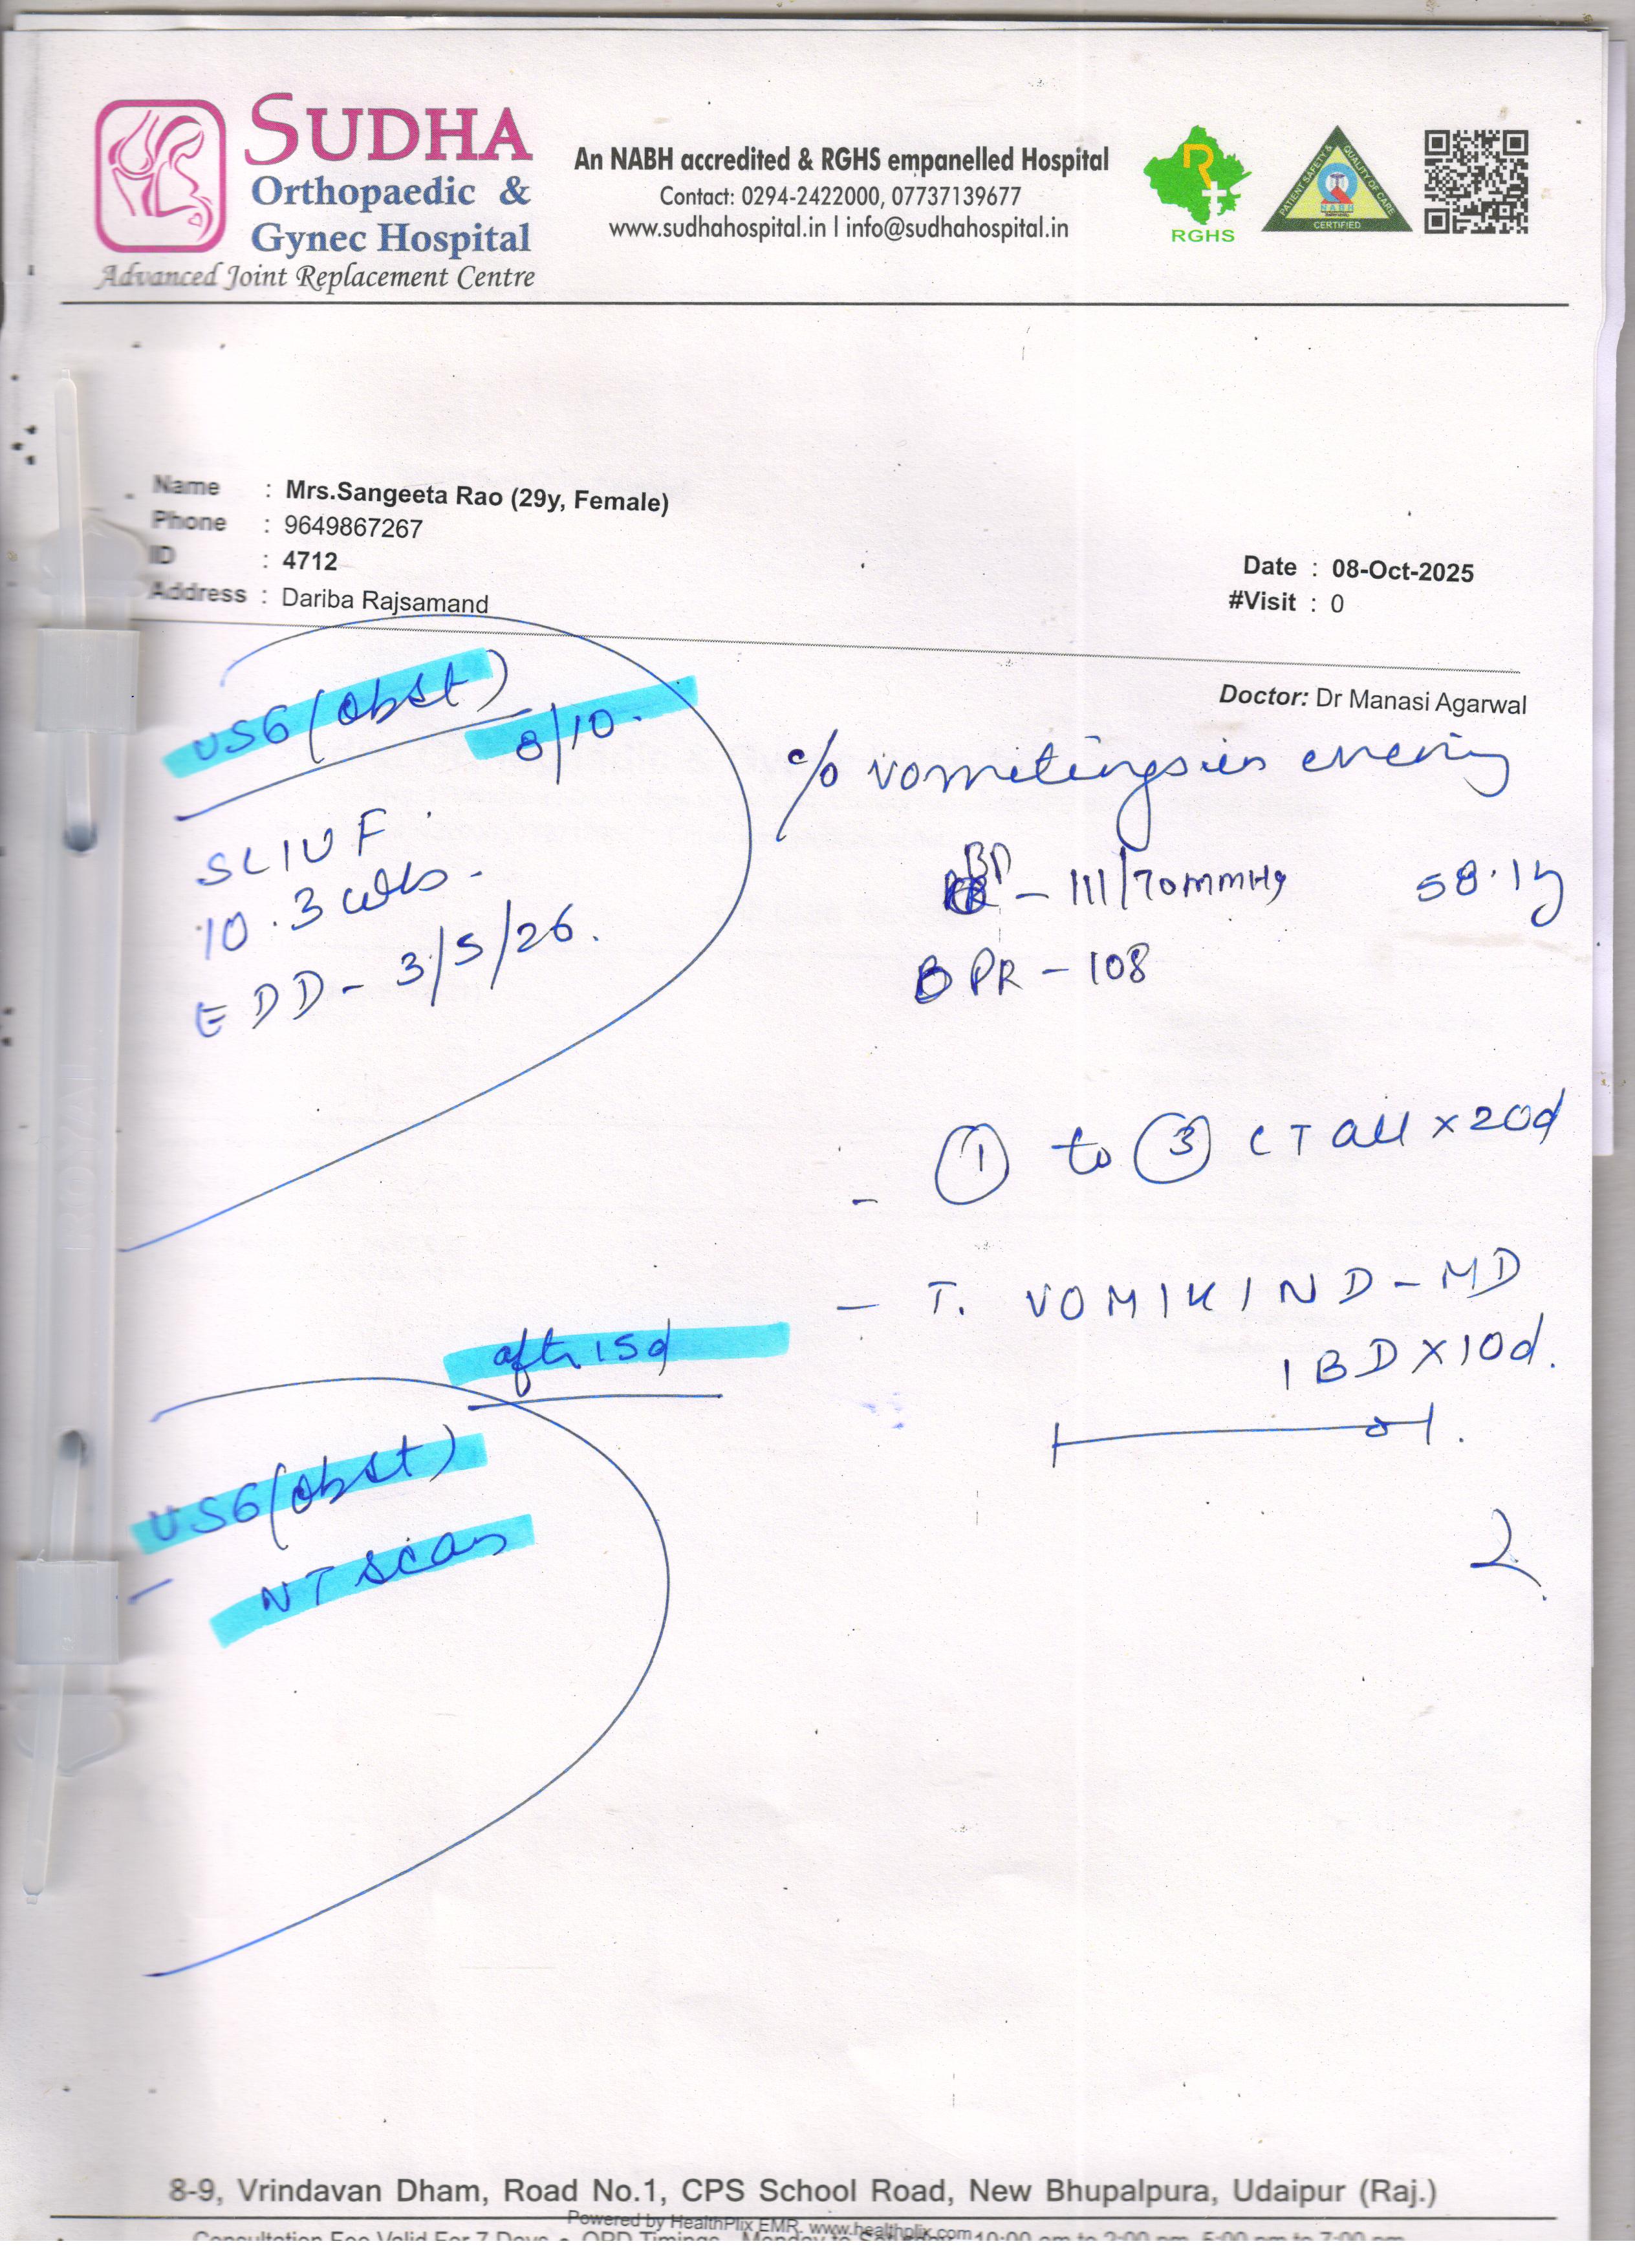 SUDHA
Orthopaedic &
Gynec Hospital
Advanced Joint Replacement Centre
An NABH accredited & RGHS empanelled Hospital
Contact: 0294-2422000, 07737139677
www.sudhahospital.in | info@sudhahospital.in
RGHS
PATIENT SAFETY & QUALITY OF CARE
NABH
CERTIFIED
Name : Mrs.Sangeeta Rao (29y, Female)
Phone : 9649867267
ID : 4712
Address : Dariba Rajsamand
Date : 08-Oct-2025
#Visit : 0
Doctor: Dr Manasi Agarwal
USG (Obst)
8/10.
SLIUF.
10.3 wks.
EDD - 3/5/26.
c/o vomitings in evening
BP - 111/70 mmHg 58.1
PR - 108
- ① to ③ CT all x 20d
- T. VOMIKIND-MD
1 BD X 10d.
after 15d
USG (Obst)
- NT scan
2
8-9, Vrindavan Dham, Road No.1, CPS School Road, New Bhupalpura, Udaipur (Raj.)
Powered by HealthPlix EMR. www.healthplix.com
Consultation Fee Valid For 7 Days • OPD Timings Monday to 10:00 am to 2:00 pm, 5:00 pm to 7:00 pm